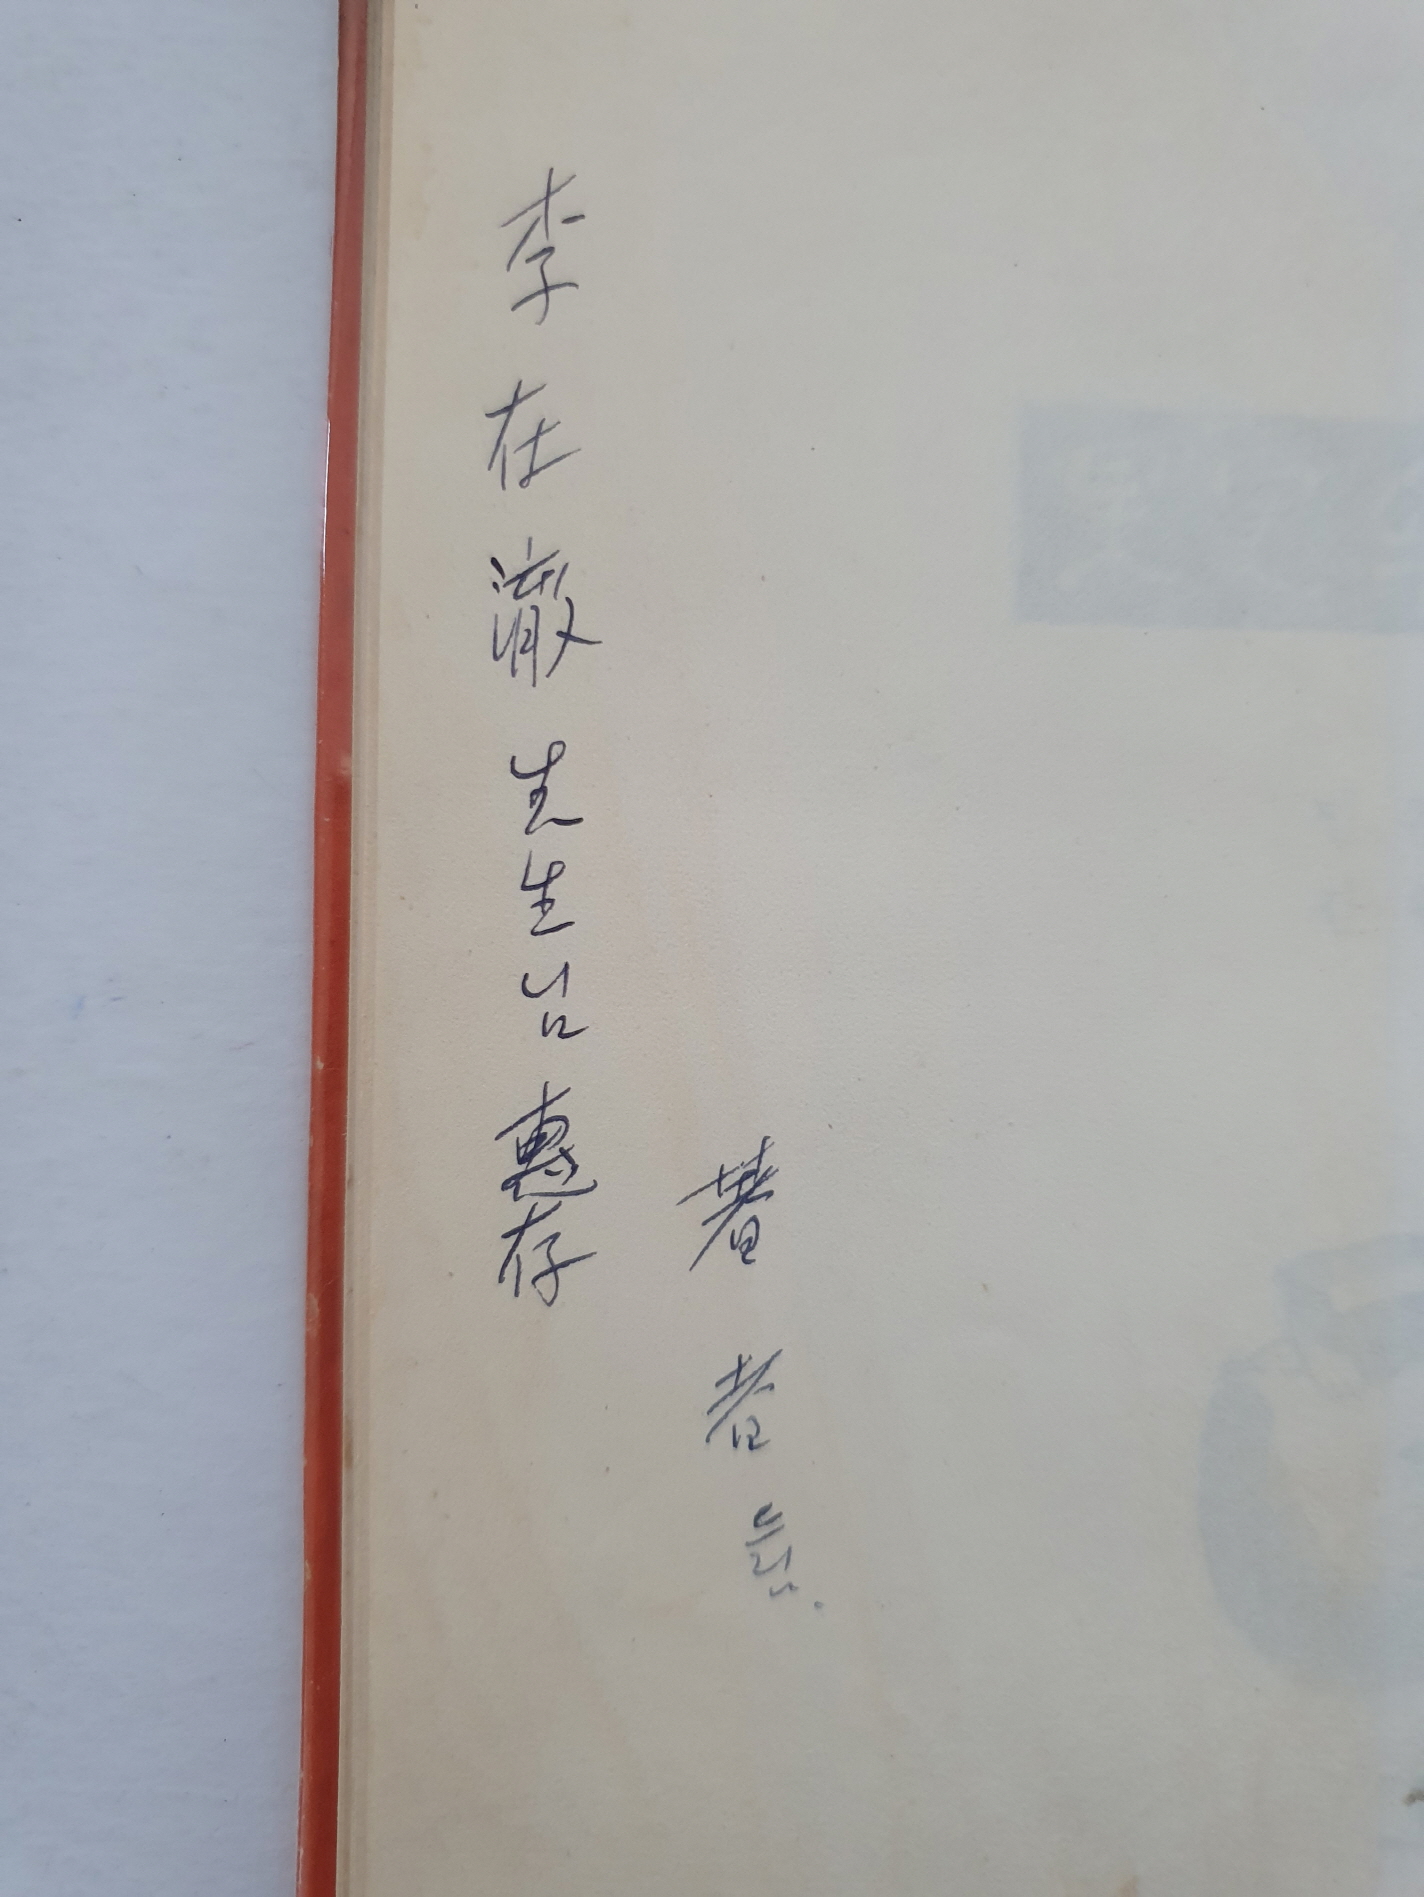 李在澈 先生님 惠存
著者 드림.